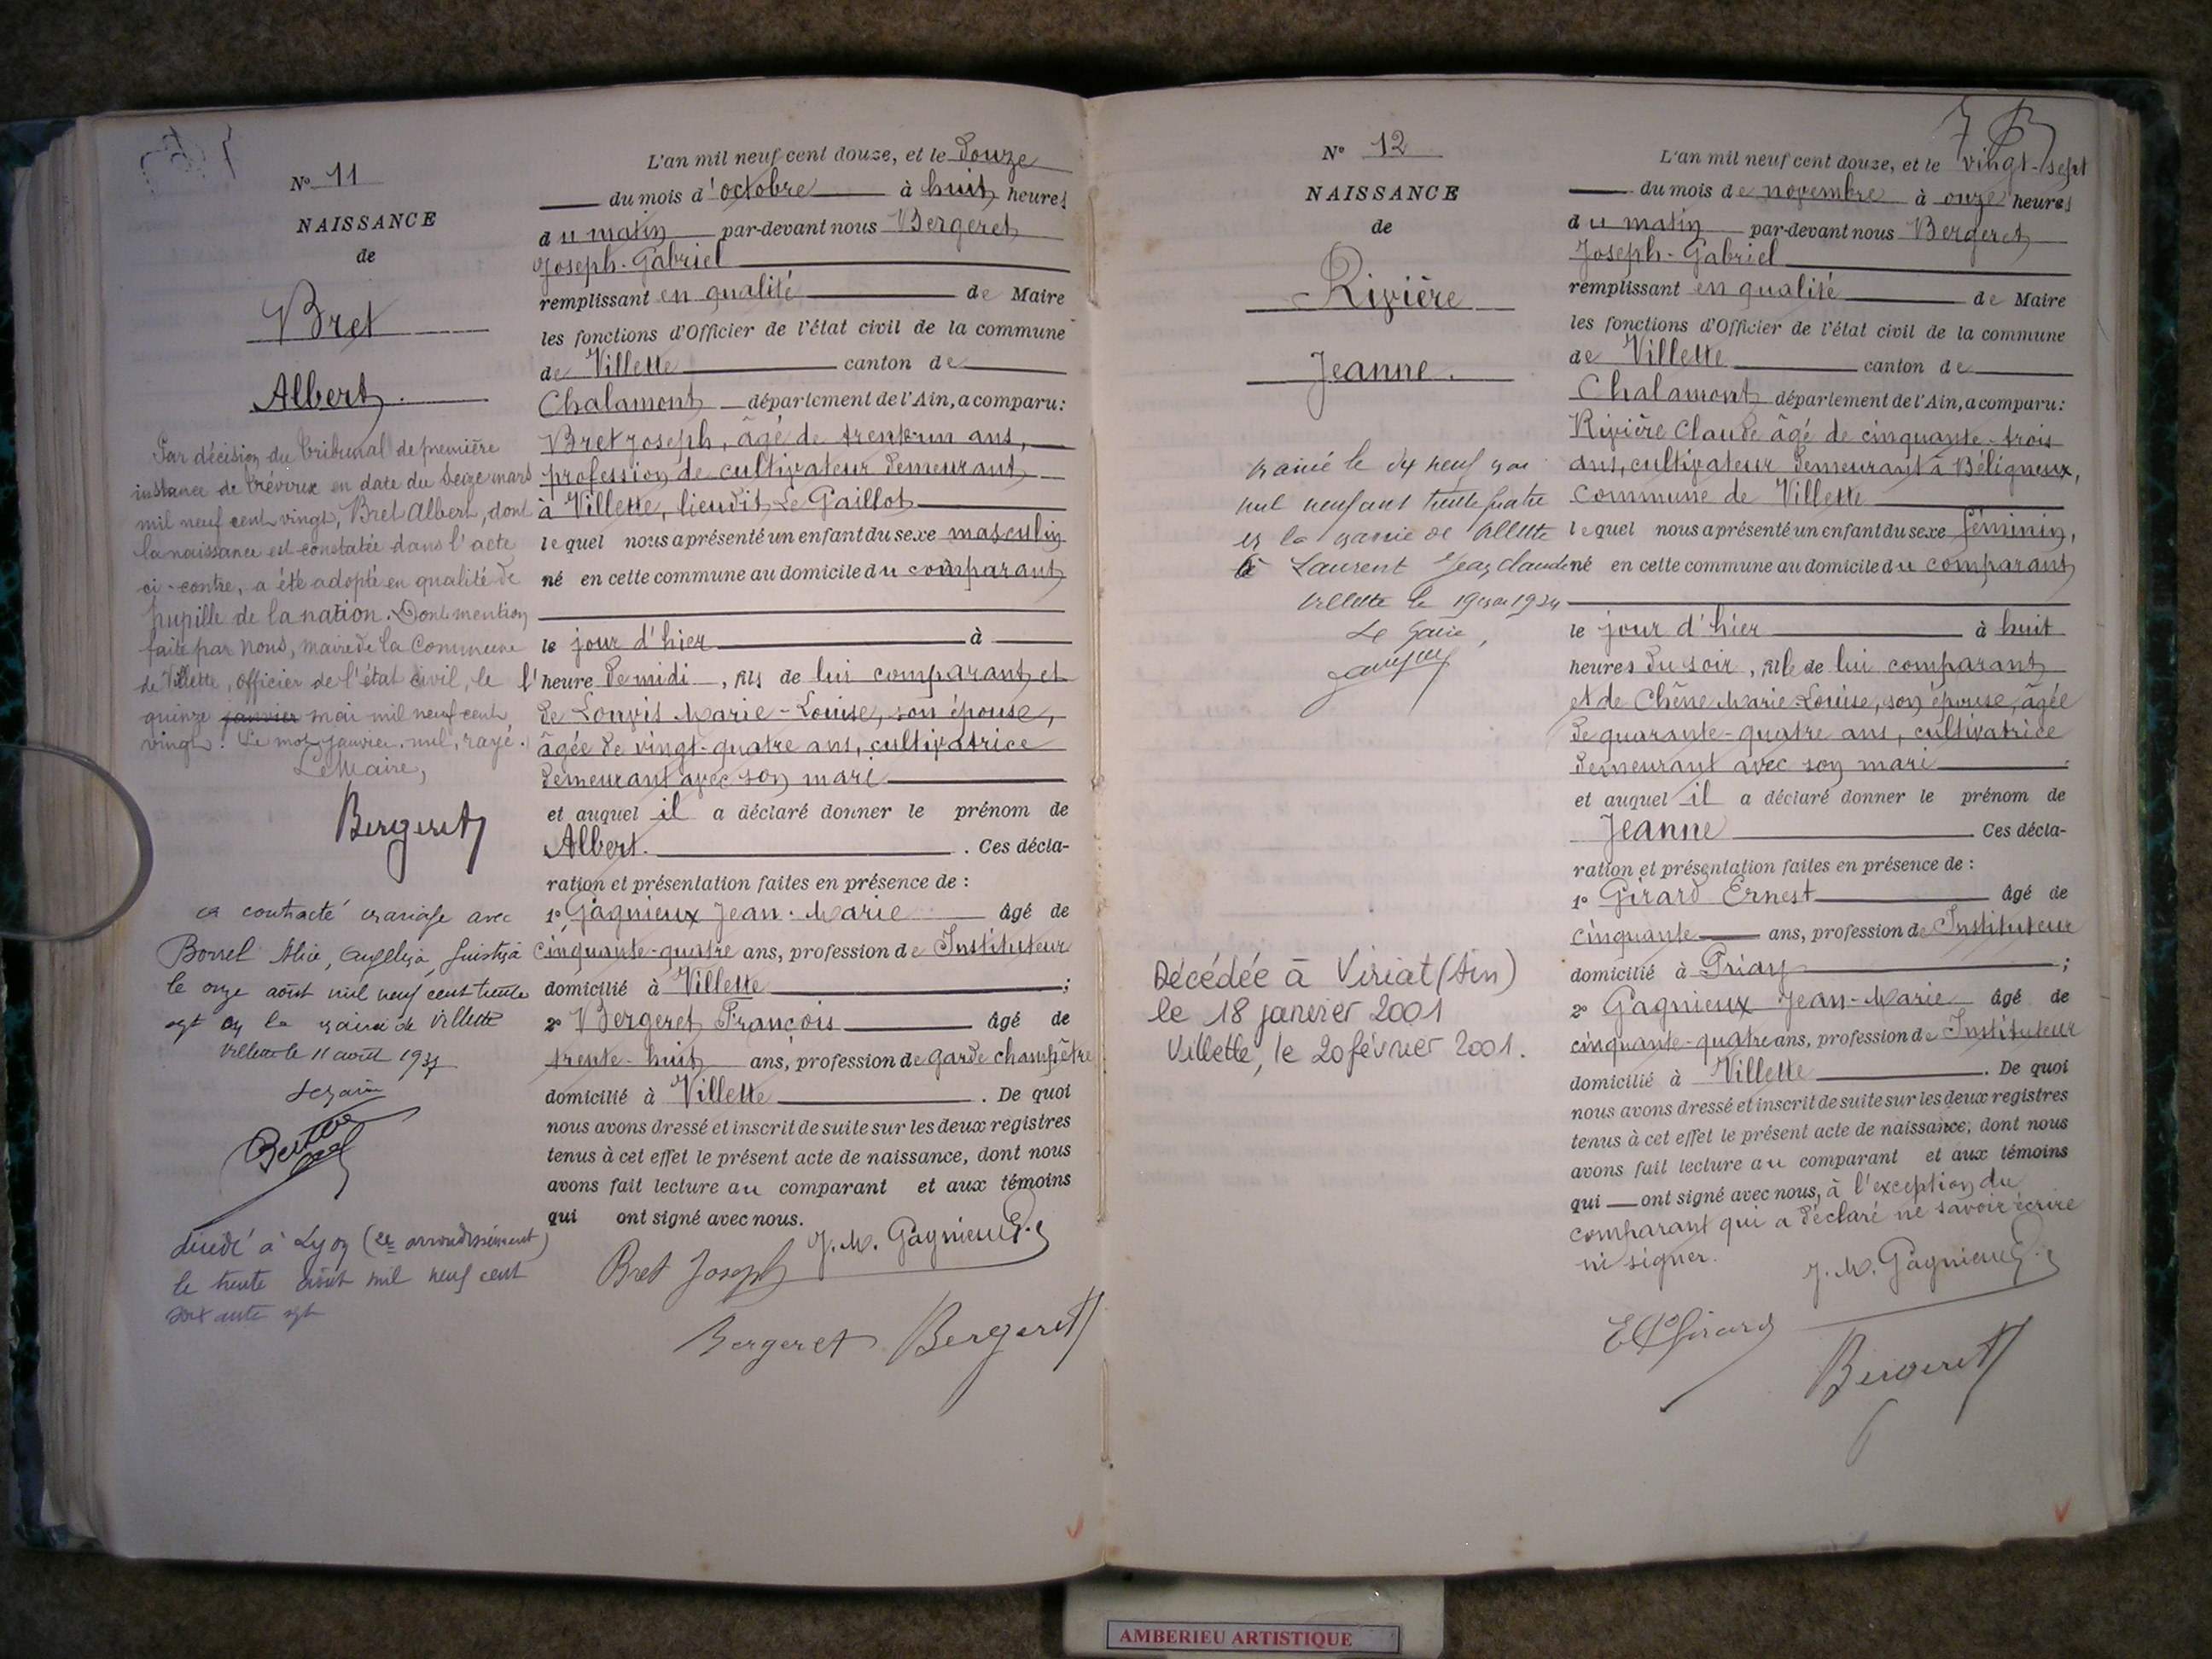 N° 11
NAISSANCE
de
Bret
Albert.
Par décision du tribunal de première
instance de Trévoux en date du seize mars
mil neuf cent vingt, Bret Albert, dont
la naissance est constatée dans l'acte
ci-contre, a été adopté en qualité de
pupille de la nation. Dont mention
faite par nous, maire de la Commune
de Villette, officier de l'état civil, le
quinze janvier mai mil neuf cent
vingt. Le mot janvier, nul, rayé.
Le Maire,
Bergeret
a contracté mariage avec
Borrel Alice,
le onze août mil neuf cent trente
sept en la mairie de Villette
Villette le 11 août 1937
Le maire
décédé à Lyon (2e arrondissement)
le trente août mil neuf cent
soixante sept
L'an mil neuf cent douze, et le douze
du mois d'octobre à huit heures
du matin par-devant nous Bergeret
Joseph-Gabriel
remplissant en qualité de Maire
les fonctions d'Officier de l'état civil de la commune
de Villette canton de
Chalamont département de l'Ain, a comparu:
Bret Joseph, âgé de trente-un ans,
profession de cultivateur demeurant
à Villette, lieudit Le Gaillot
lequel nous a présenté un enfant du sexe masculin
né en cette commune au domicile du comparant
le jour d'hier à
l'heure de midi, fils de lui comparant et
de Louvis Marie-Louise, son épouse,
âgée de vingt-quatre ans, cultivatrice
demeurant avec son mari
et auquel il a déclaré donner le prénom de
Albert. . Ces décla-
ration et présentation faites en présence de :
1° Gagnieux Jean-Marie âgé de
cinquante-quatre ans, profession de Instituteur
domicilié à Villette ;
2° Bergeret François âgé de
trente-huit ans, profession de garde champêtre
domicilié à Villette . De quoi
nous avons dressé et inscrit de suite sur les deux registres
tenus à cet effet le présent acte de naissance, dont nous
avons fait lecture au comparant et aux témoins
qui ont signé avec nous.
J. M. Gagnieux
Bret Joseph
Bergeret Bergeret
N° 12
NAISSANCE
de
Rivière
Jeanne.
marié le dix neuf mai
mil neuf cent trente quatre
en la mairie de Villette
à Laurent Jean Claude
Villette le 19 mai 1934
Le Maire,
Décédée à Viriat (Ain)
le 18 janvier 2001
Villette, le 20 février 2001.
L'an mil neuf cent douze, et le vingt-sept
du mois de novembre à onze heures
du matin par-devant nous Bergeret
Joseph-Gabriel
remplissant en qualité de Maire
les fonctions d'Officier de l'état civil de la commune
de Villette canton de
Chalamont département de l'Ain, a comparu:
Rivière Claude âgé de cinquante-trois
ans, cultivateur demeurant à Béligneux,
commune de Villette
lequel nous a présenté un enfant du sexe féminin,
né en cette commune au domicile du comparant
le jour d'hier à huit
heures du soir, fille de lui comparant
et de Chêne Marie-Louise, son épouse, âgée
de quarante-quatre ans, cultivatrice
demeurant avec son mari
et auquel il a déclaré donner le prénom de
Jeanne . Ces décla-
ration et présentation faites en présence de :
1° Girard Ernest âgé de
cinquante ans, profession de Instituteur
domicilié à Priay ;
2° Gagnieux Jean-Marie âgé de
cinquante-quatre ans, profession de Instituteur
domicilié à Villette . De quoi
nous avons dressé et inscrit de suite sur les deux registres
tenus à cet effet le présent acte de naissance, dont nous
avons fait lecture au comparant et aux témoins
qui ont signé avec nous, à l'exception du
comparant qui a déclaré ne savoir écrire
ni signer.
J. M. Gagnieux
Girard
Bergeret
AMBERIEU ARTISTIQUE